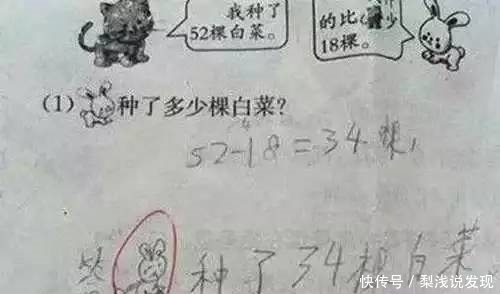 我种了
52棵白菜。
的比
少
18棵。
(1) 种了多少棵白菜?
52-18=34棵,
答 种了34棵白菜
快传号 / 梨浅说发现